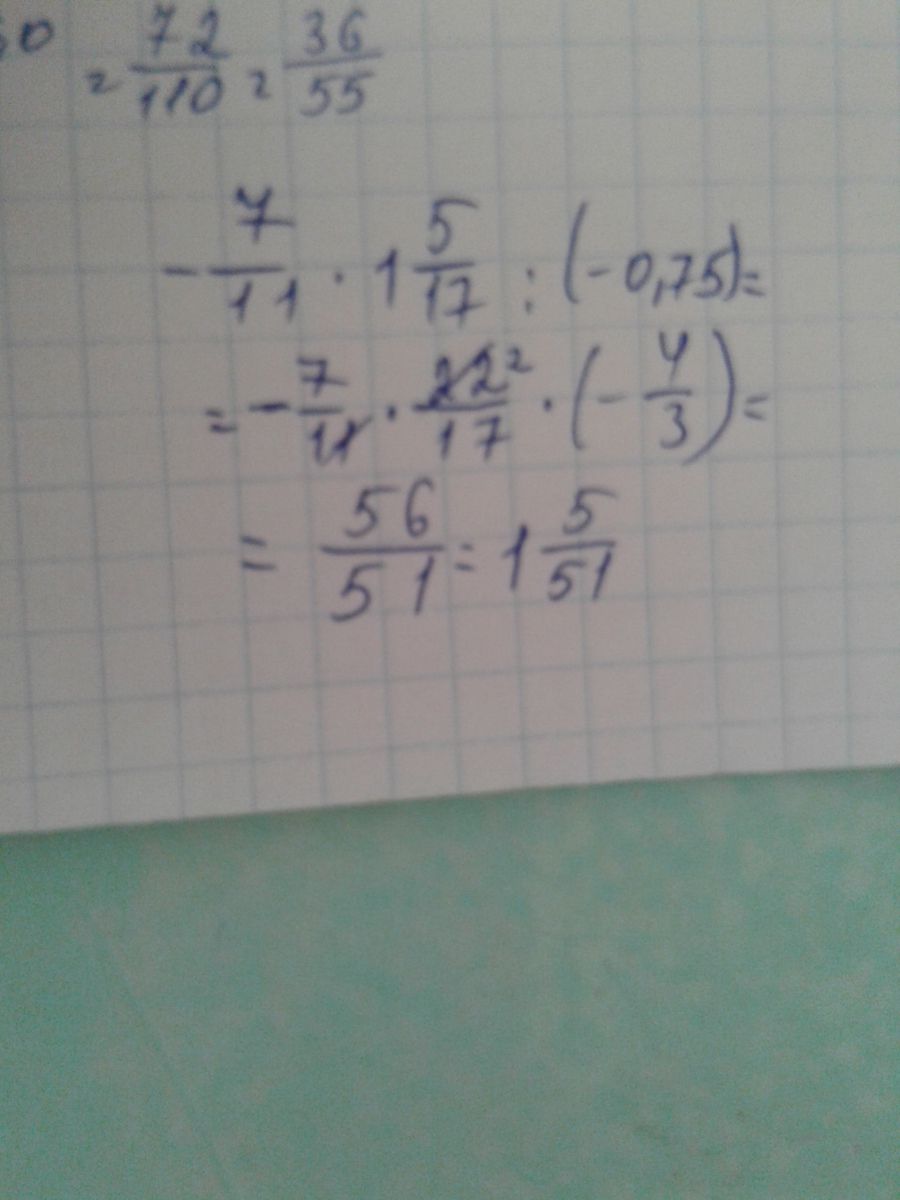 = 72/110 = 36/55
- 7/11 · 1 5/17 : (-0,75) =
= - 7/11 · 22²/17 · (- 4/3) =
= 56/51 = 1 5/51